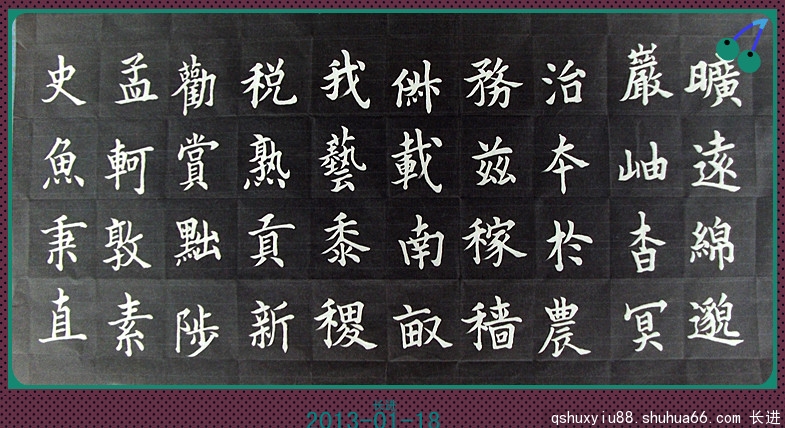 曠遠綿邈
巖岫杳冥
治本於農
務茲稼穡
俶載南畝
我藝黍稷
税熟貢新
勸賞黜陟
孟軻敦素
史魚秉直
长进
2013-01-18
qshuxyiu88.shuhua66.com 长进